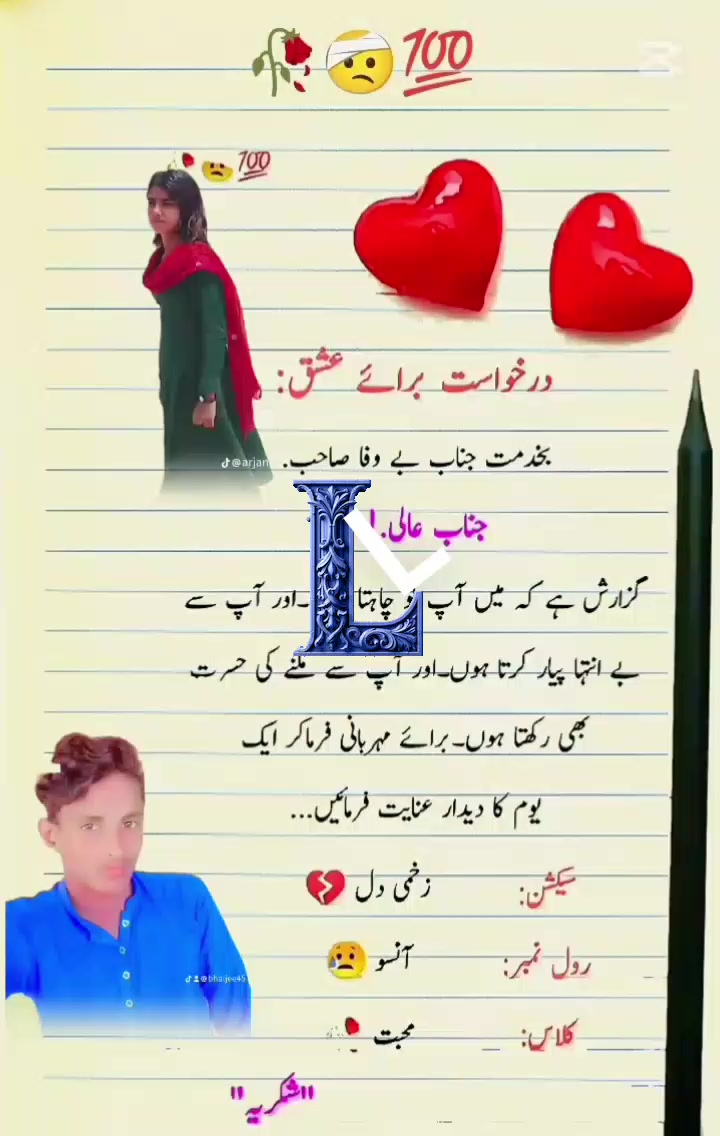 درخواست برائے عشق:
بخدمت جناب بے وفا صاحب.
@arjan
جناب عالی.!
گزارش ہے کہ میں آپ کو چاہتا ۔اور آپ سے
بے انتہا پیار کرتا ہوں۔اور آپ سے ملنے کی حسرت
بھی رکھتا ہوں۔برائے مہربانی فرماکر ایک
یوم کا دیدار عنایت فرمائیں...
سیکشن: زخمی دل
رول نمبر: آنسو
@bhaijee45
کلاس: محبت
"شکریہ"